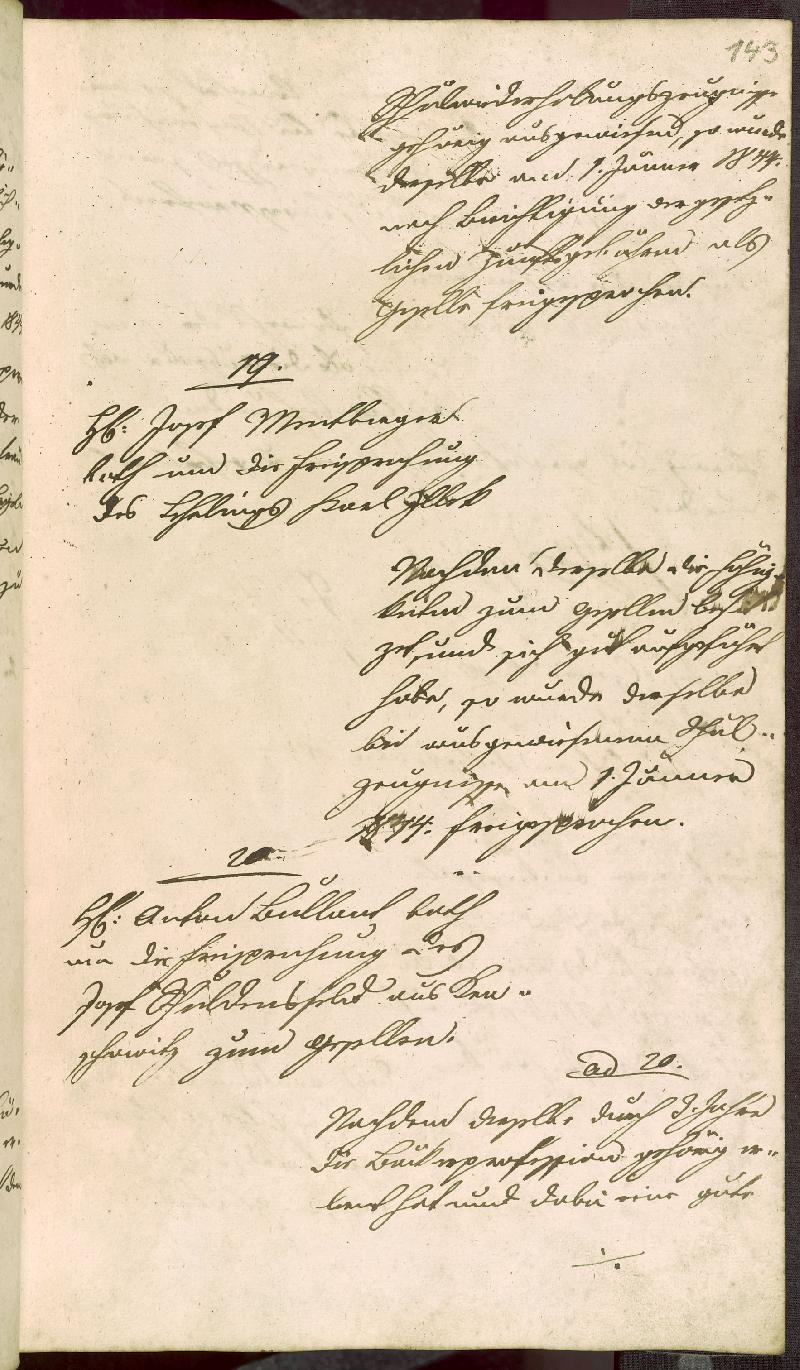 143
Schulwiederholungszeugnisse
gehörig ausgewiesen, so wurde
derselbe am 1. Jänner 1844.
nach Berichtigung der gesetz-
lichen Zunftgebühren als
Geselle freigesprochen.
19.
H: Josef
bath um die Freisprechung
des Lehrlings Karl
Nachdem derselbe die Fähig-
keiten zum Gesellen besit-
zet, und sich gut aufgeführt
habe, so wurde derselbe
bei ausgewiesenen Schul-
zeugnisse am 1. Jänner
1844. freigesprochen.
20.
H: Anton Bullant bath
um die Freisprechung des
Josef Schuldensfeld aus
zum Gesellen.
ad 20.
Nachdem derselbe durch 3. Jahre
die Bäckerprofession gehörig er-
lernt hat und dabei eine gute
./.